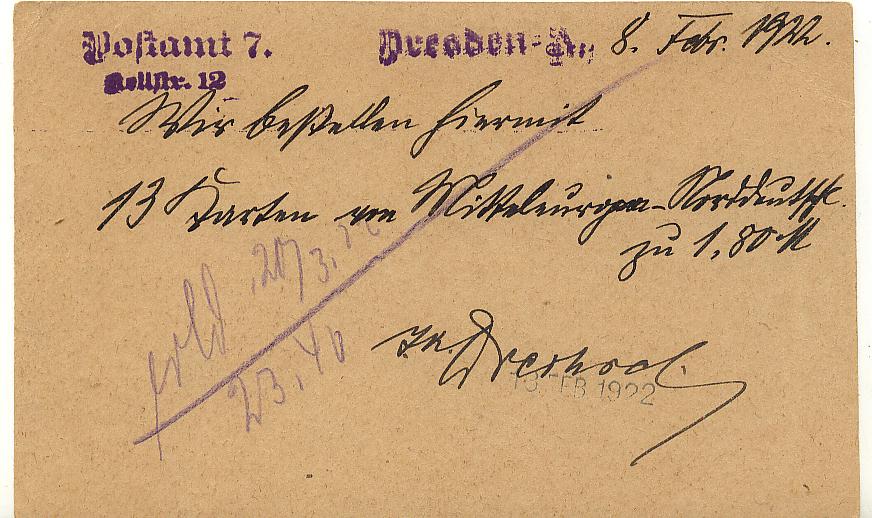 Postamt 7. Dresden-A., 8. Febr. 1922.
Wir bestellen hiermit
13 Karten von Mitteleuropa-Norddeutschl.
zu 1,80 M
erld. 20/3. 22
23,40
13 FEB 1922